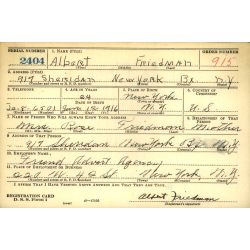 SERIAL NUMBER 1. NAME (Print) ORDER NUMBER
2404 Albert Friedman 915
2. ADDRESS (Print)
917 Sheridan New York Bx. N.Y.
3. TELEPHONE 4. AGE IN YEARS 5. PLACE OF BIRTH 6. COUNTRY OF CITIZENSHIP
24 New York
DATE OF BIRTH
June 12 1916 N.Y. U S
7. NAME OF PERSON WHO WILL ALWAYS KNOW YOUR ADDRESS 8. RELATIONSHIP OF THAT PERSON
Mrs. Rose Friedman Mother
9. ADDRESS OF THAT PERSON
917 Sheridan New York Bx N.Y.
10. EMPLOYER'S NAME
Friend Advert Agency
11. PLACE OF EMPLOYMENT OR BUSINESS
W. 42 St New York N.Y.
I AFFIRM THAT I HAVE VERIFIED ABOVE ANSWERS AND THAT THEY ARE TRUE.
REGISTRATION CARD
D. S. S. Form 1
Albert Friedman